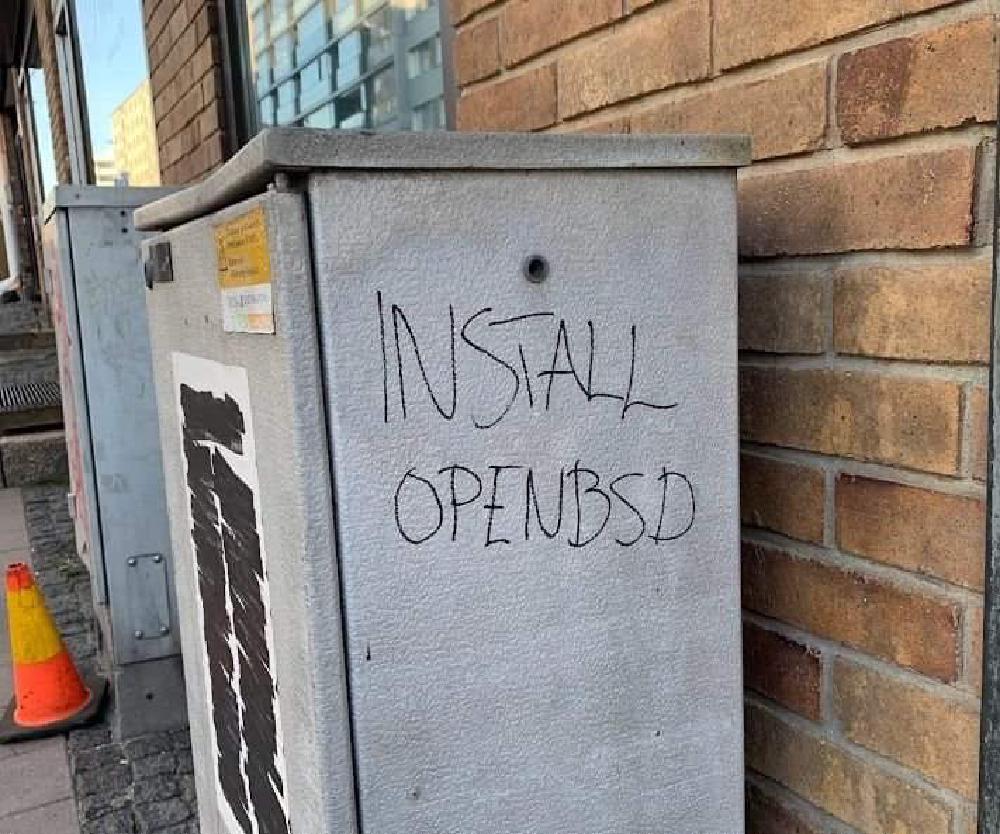 INSTALL
OPENBSD